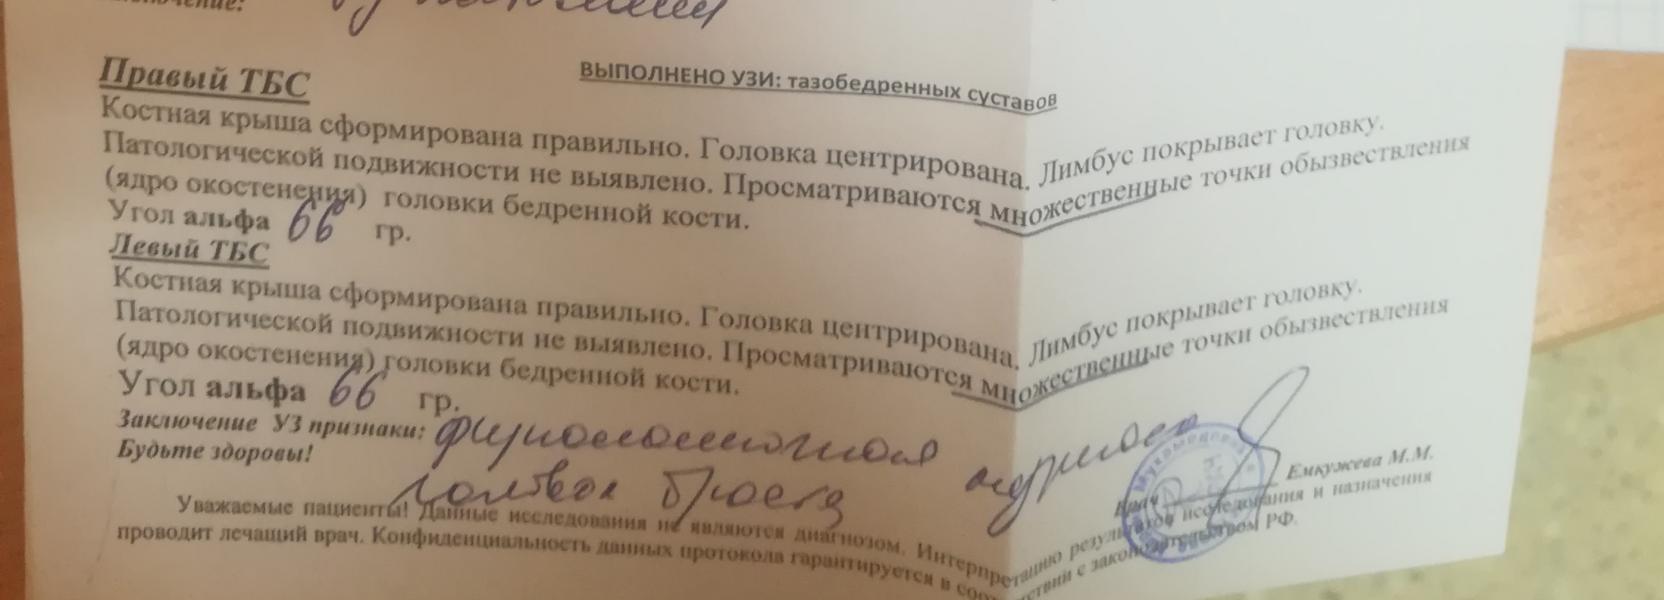 ВЫПОЛНЕНО УЗИ: тазобедренных суставов
Правый ТБС
Костная крыша сформирована правильно. Головка центрирована. Лимбус покрывает головку.
Патологической подвижности не выявлено. Просматриваются множественные точки обызвествления
(ядро окостенения) головки бедренной кости.
Угол альфа 66 гр.
Левый ТБС
Костная крыша сформирована правильно. Головка центрирована. Лимбус покрывает головку.
Патологической подвижности не выявлено. Просматриваются множественные точки обызвествления
(ядро окостенения) головки бедренной кости.
Угол альфа 66 гр.
Заключение УЗ признаки:
Будьте здоровы!
Врач Емкужева М.М.
Уважаемые пациенты! Данные исследования не являются диагнозом. Интерпретацию исследования и назначения
проводит лечащий врач. Конфиденциальность данных протокола гарантируется в с законодательством РФ.